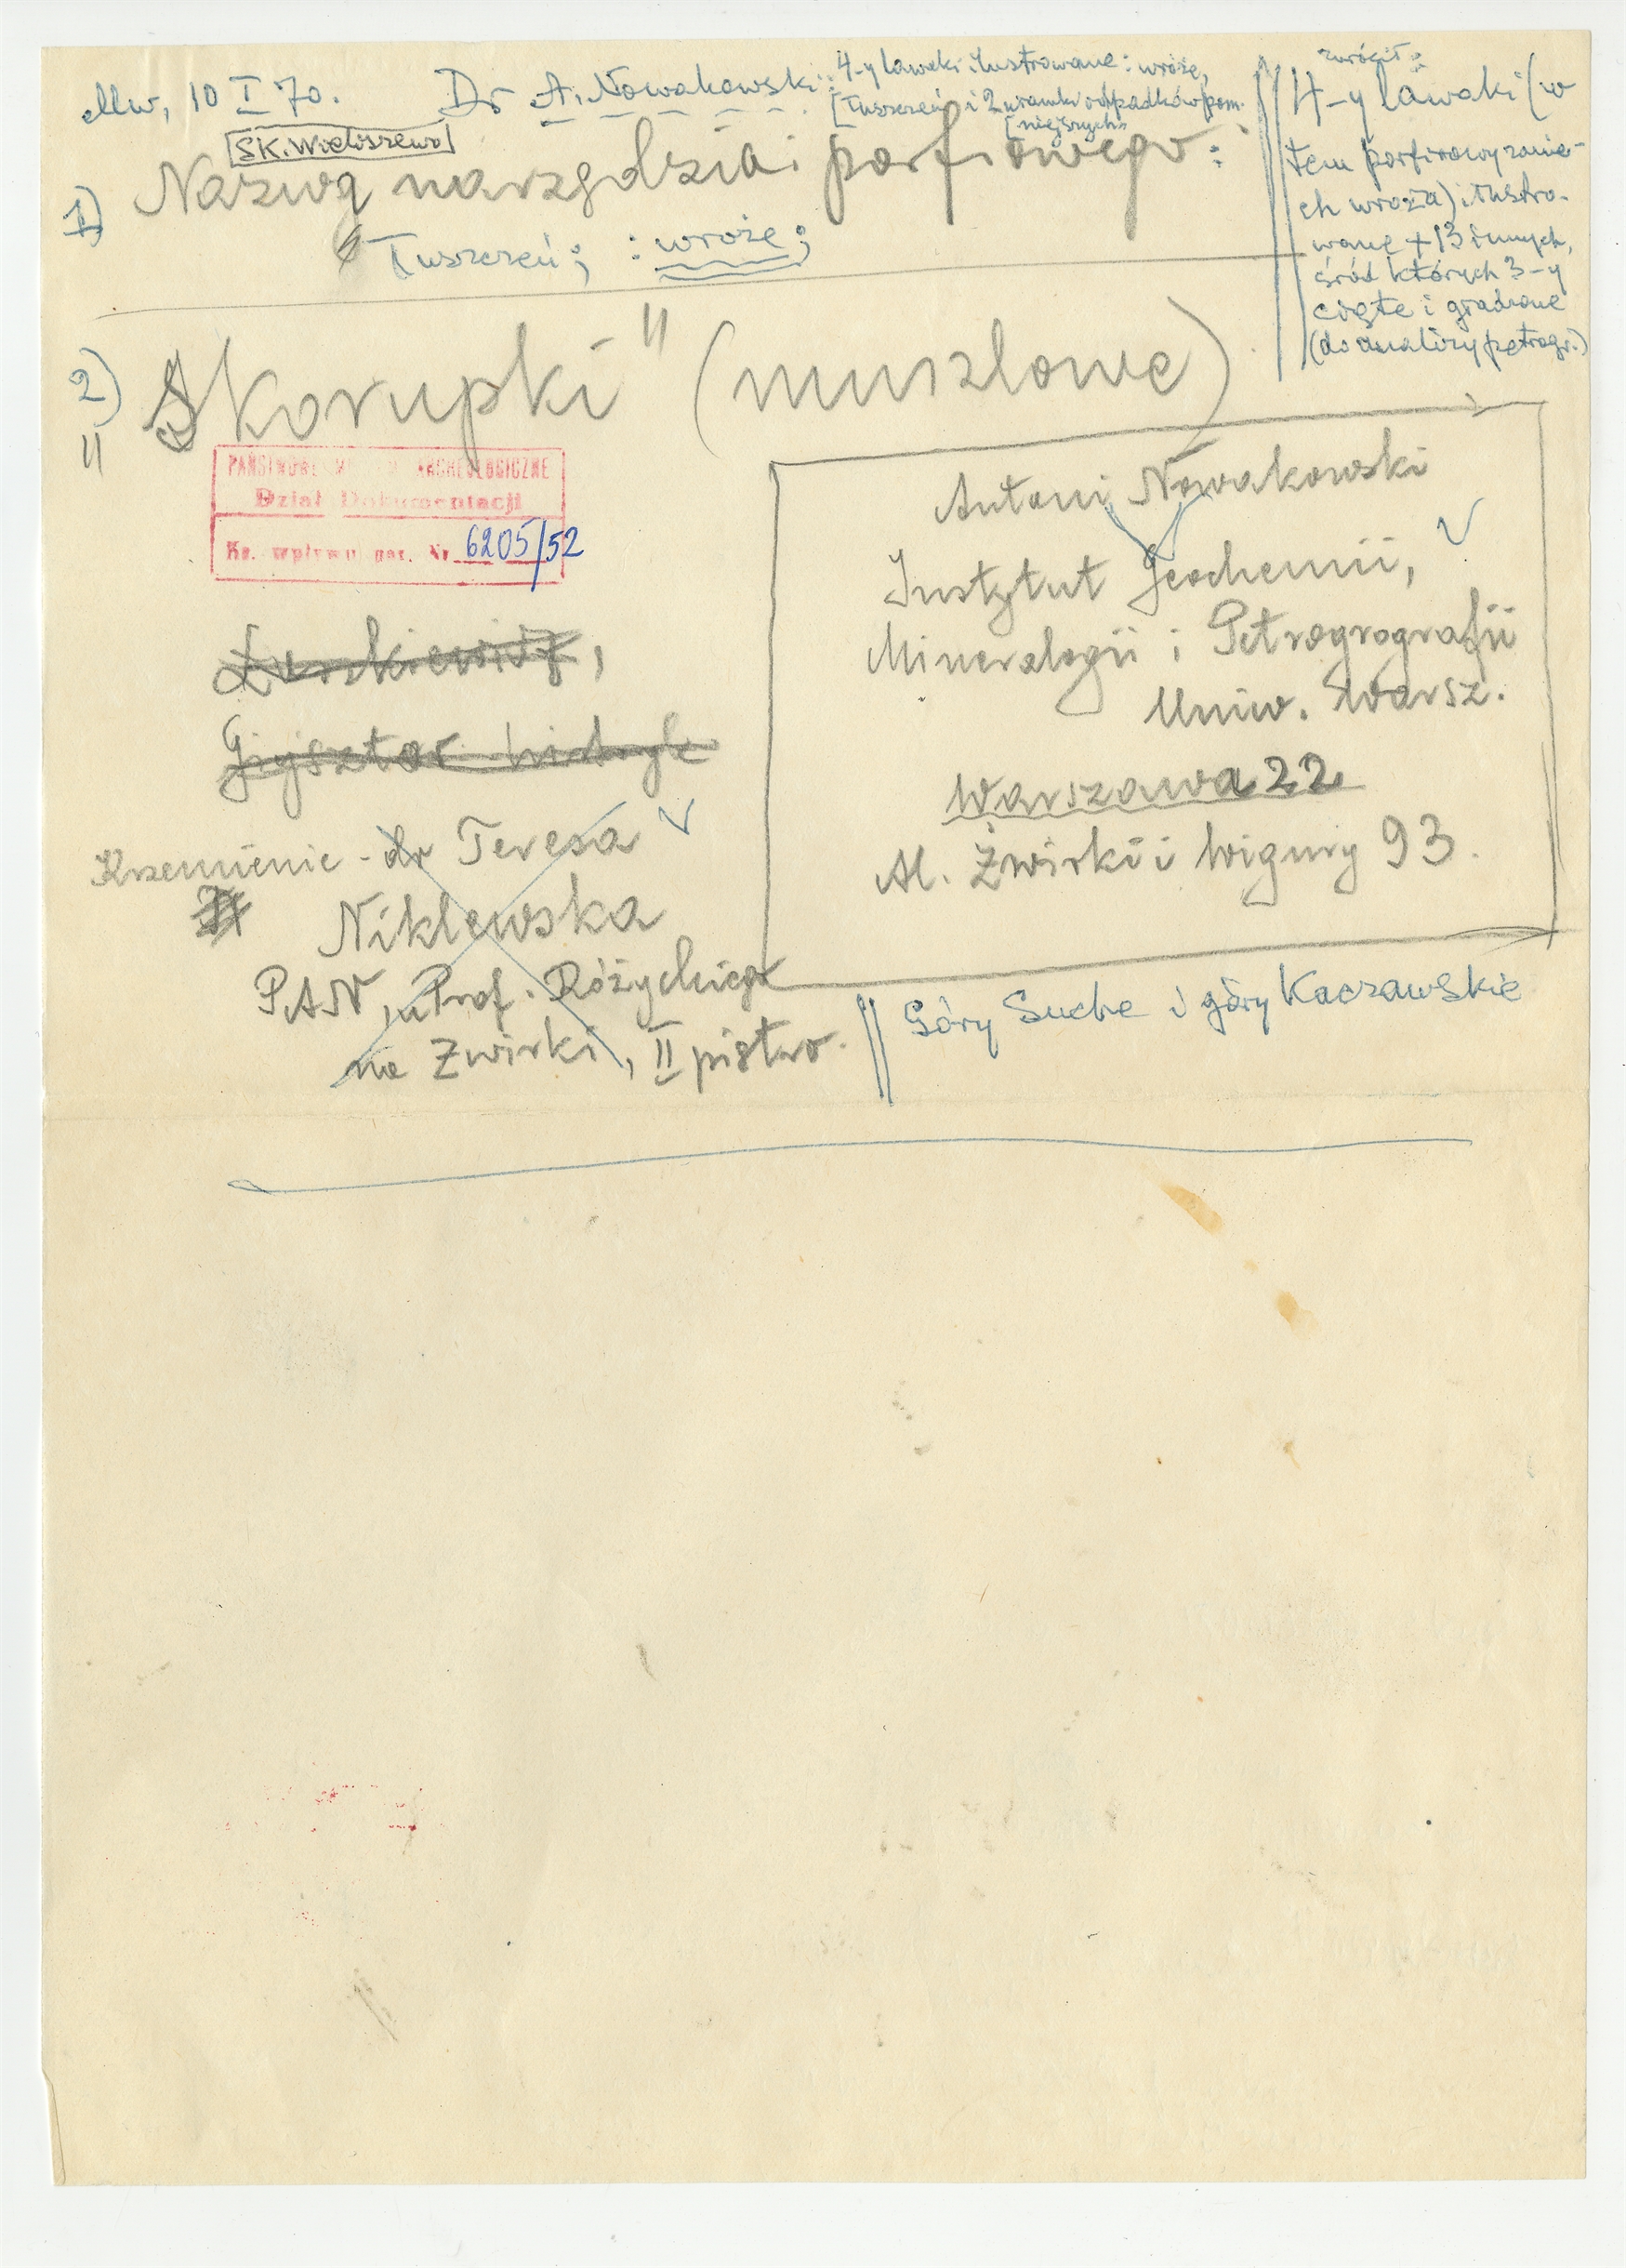 Mw, 10 I 70. Dr A. Nowakowski:
4-y ławeki ilustrowane: wroże,
[Tuszczeń i 2 uramki odpadków pom-
[niejszych
[SK. Wieloszewo]
1) Nazwą narzędzia i porfirowego:
Tuszczeń; : wroże;
zwrócił:
4-y ławeki (w
tem porfirowy
ch wroża) i lustro.
wane + 13 innych,
śród których 3-y
cięte i gładzone
(do analizy petrogr.)
2) "Skorupki" (muszlowe)
PAŃSTWOWE MUZEUM ARCHEOLOGICZNE
Dział Dokumentacji
Ks. wpływu Nr 6205/52
Antoni Nowakowski
Instytut Geochemii,
Mineralogii i Petrogrografii
Uniw. Warsz.
Warszawa 22
Al. Żwirki i Wigury 93.
Krzemienie - dr Teresa
Niklewska
PAN, u Prof. Różyckiego
na Zwirki, II piętro.
Góry Suche i góry Kaczawskie